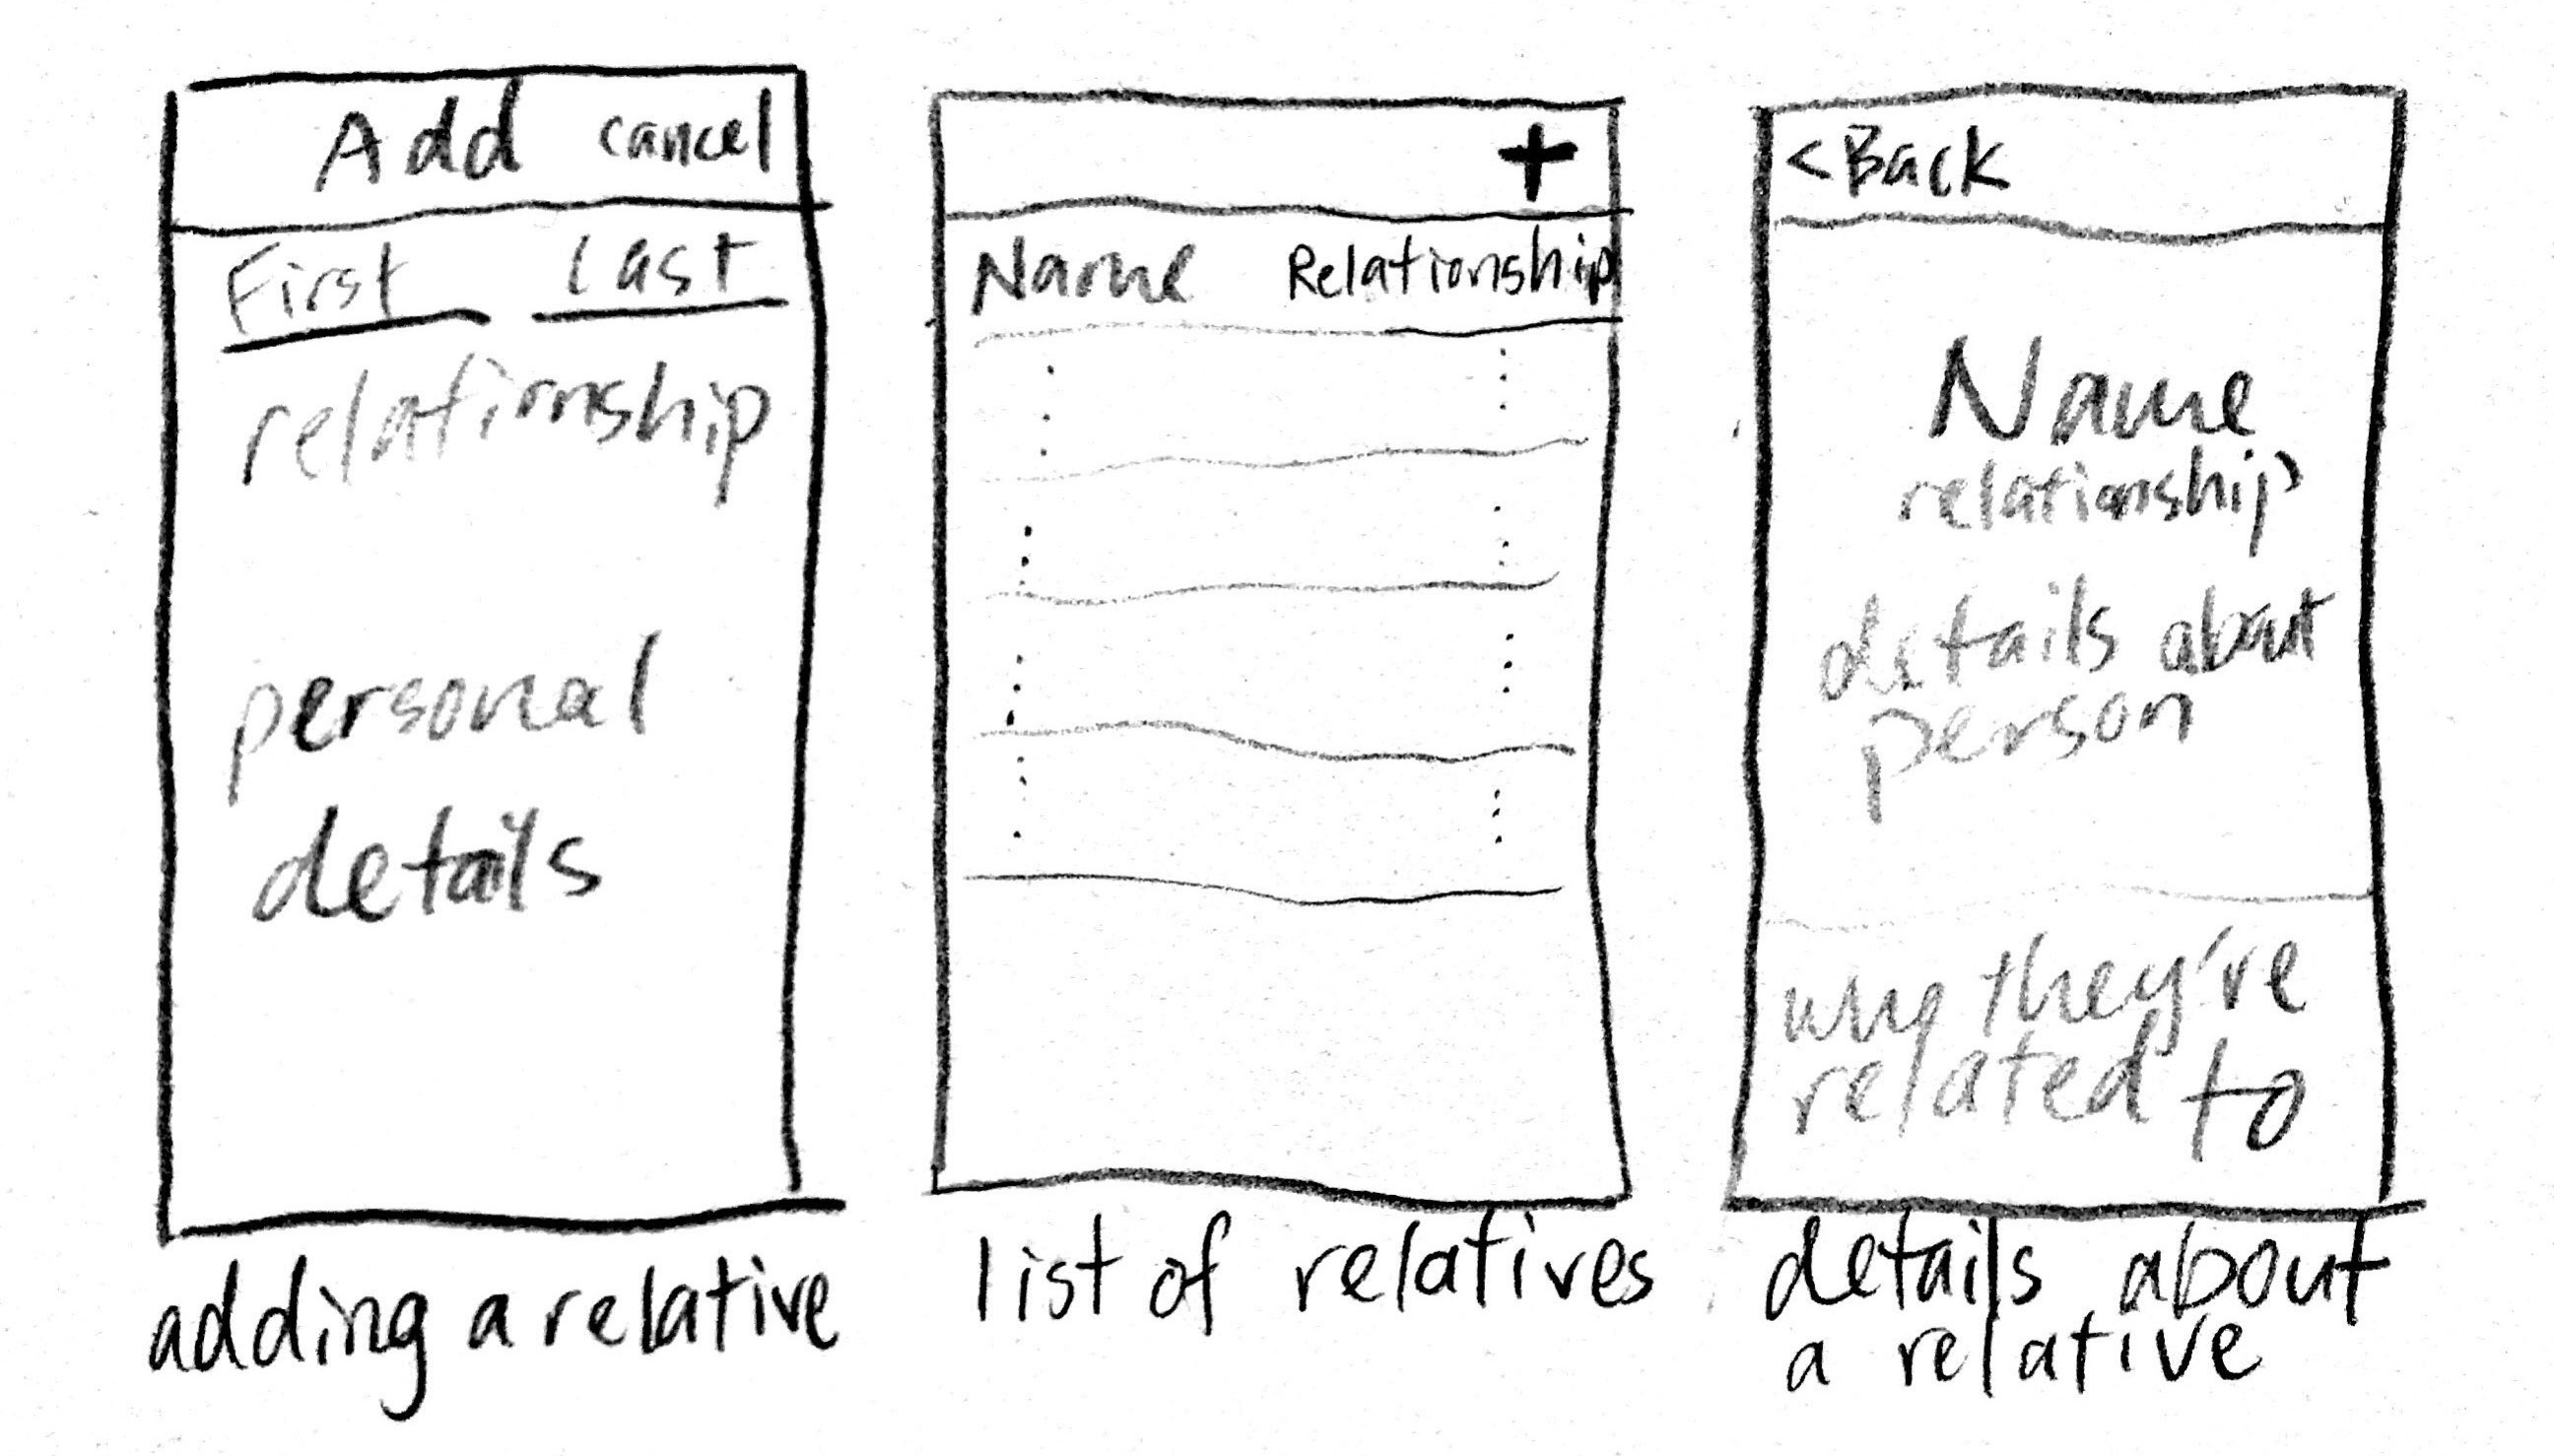 Add cancel
First Last
relationship
personal
details
adding a relative
+
Name Relationship
list of relatives
< Back
Name
relationship
details about
person
why they're
related to
details about
a relative